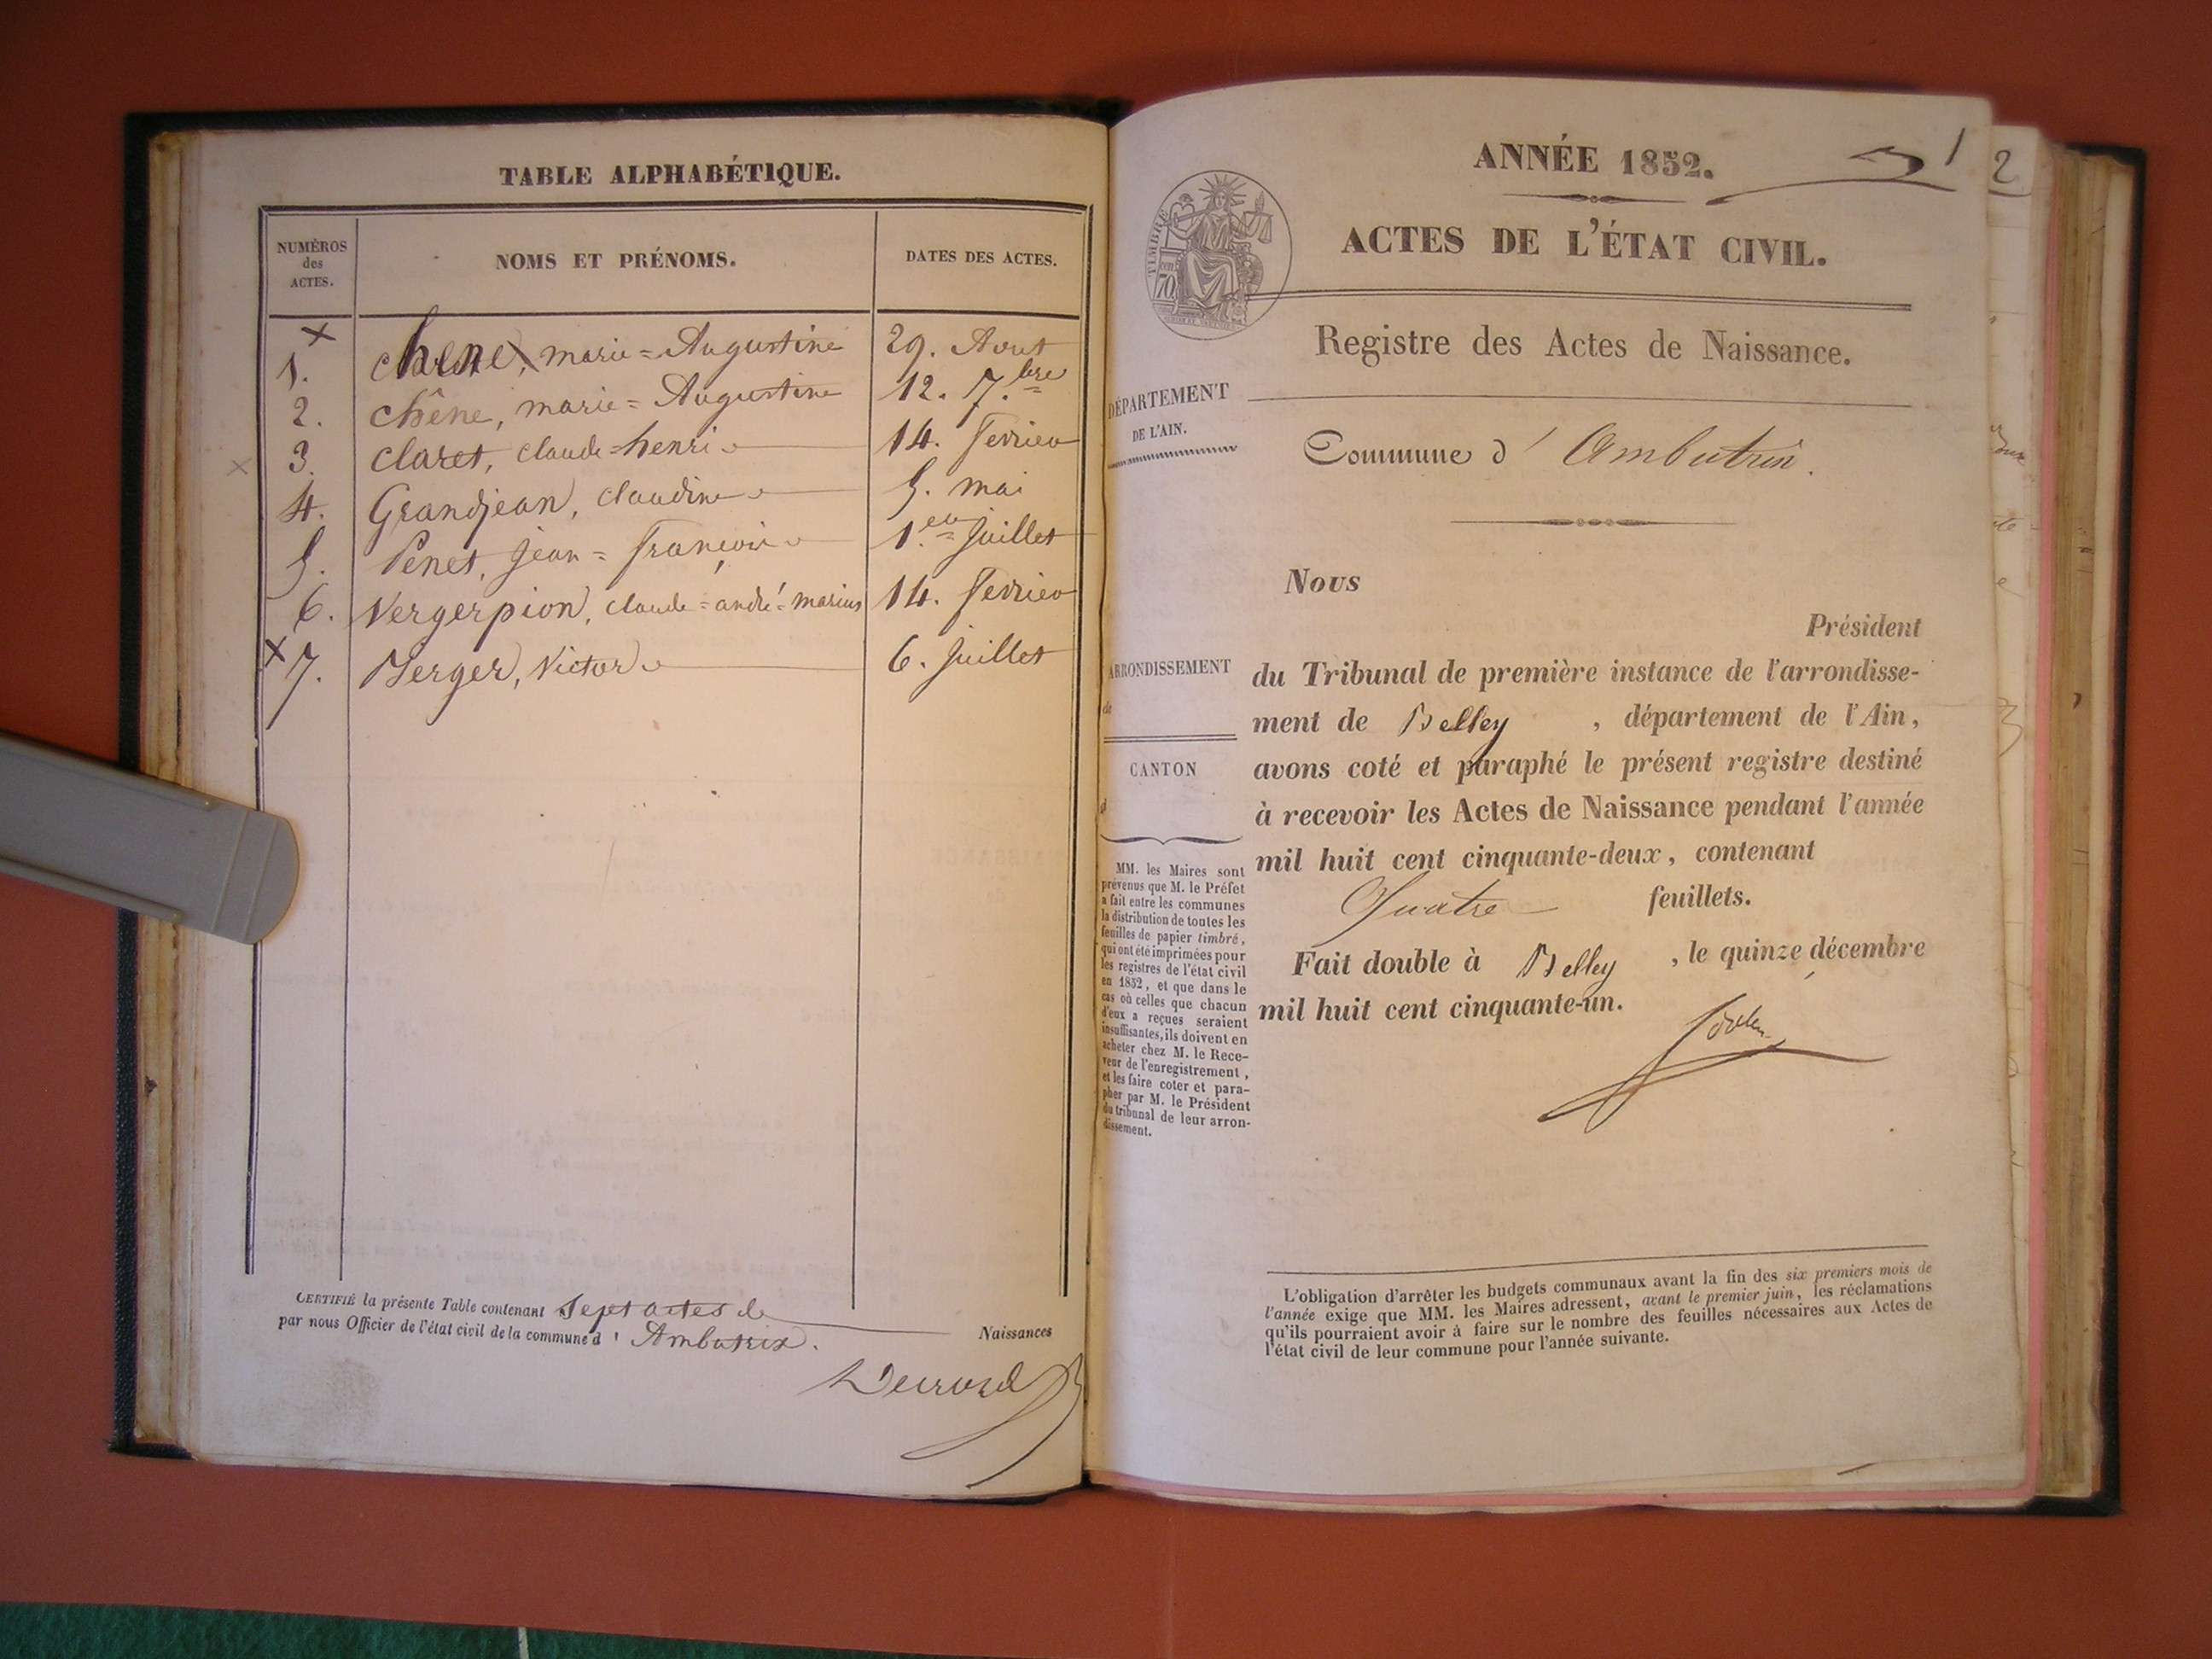 TABLE ALPHABÉTIQUE.
NUMÉROS
des
ACTES.
NOMS ET PRÉNOMS.
DATES DES ACTES.
1. chêne, marie=Augustine 29. Aout
2. chêne, marie=Augustine 12. 7.bre
3. claret, claude=henri 14. fevrier
4. Grandjean, claudine 5. mai
5. Penet, jean=françois 1.er juillet
6. Vergerpion, claude=andré=marius 14. fevrier
7. Berger, Victor 6. juillet
CERTIFIÉ la présente Table contenant Sept actes de
Naissances
par nous Officier de l'état civil de la commune d'Ambutrix.
ANNÉE 1852.
1
2
ACTES DE L'ÉTAT CIVIL.
TIMBRE
70
Registre des Actes de Naissance.
DÉPARTEMENT
DE L'AIN.
Commune d'Ambutrix.
Nous
Président
ARRONDISSEMENT
de
du Tribunal de première instance de l'arrondisse-
ment de Belley, département de l'Ain,
CANTON
d
avons coté et paraphé le présent registre destiné
à recevoir les Actes de Naissance pendant l'année
mil huit cent cinquante-deux, contenant
Quatre feuillets.
Fait double à Belley, le quinze décembre
mil huit cent cinquante-un.
MM. les Maires sont
prévenus que M. le Préfet
a fait entre les communes
la distribution de toutes les
feuilles de papier timbré,
qui ont été imprimées pour
les registres de l'état civil
en 1852, et que dans le
cas où celles que chacun
d'eux a reçues seraient
insuffisantes, ils doivent en
acheter chez M. le Rece-
veur de l'enregistrement,
et les faire coter et para-
pher par M. le Président
du tribunal de leur arron-
dissement.
L'obligation d'arrêter les budgets communaux avant la fin des six premiers mois de
l'année exige que MM. les Maires adressent, avant le premier juin, les réclamations
qu'ils pourraient avoir à faire sur le nombre des feuilles nécessaires aux Actes de
l'état civil de leur commune pour l'année suivante.